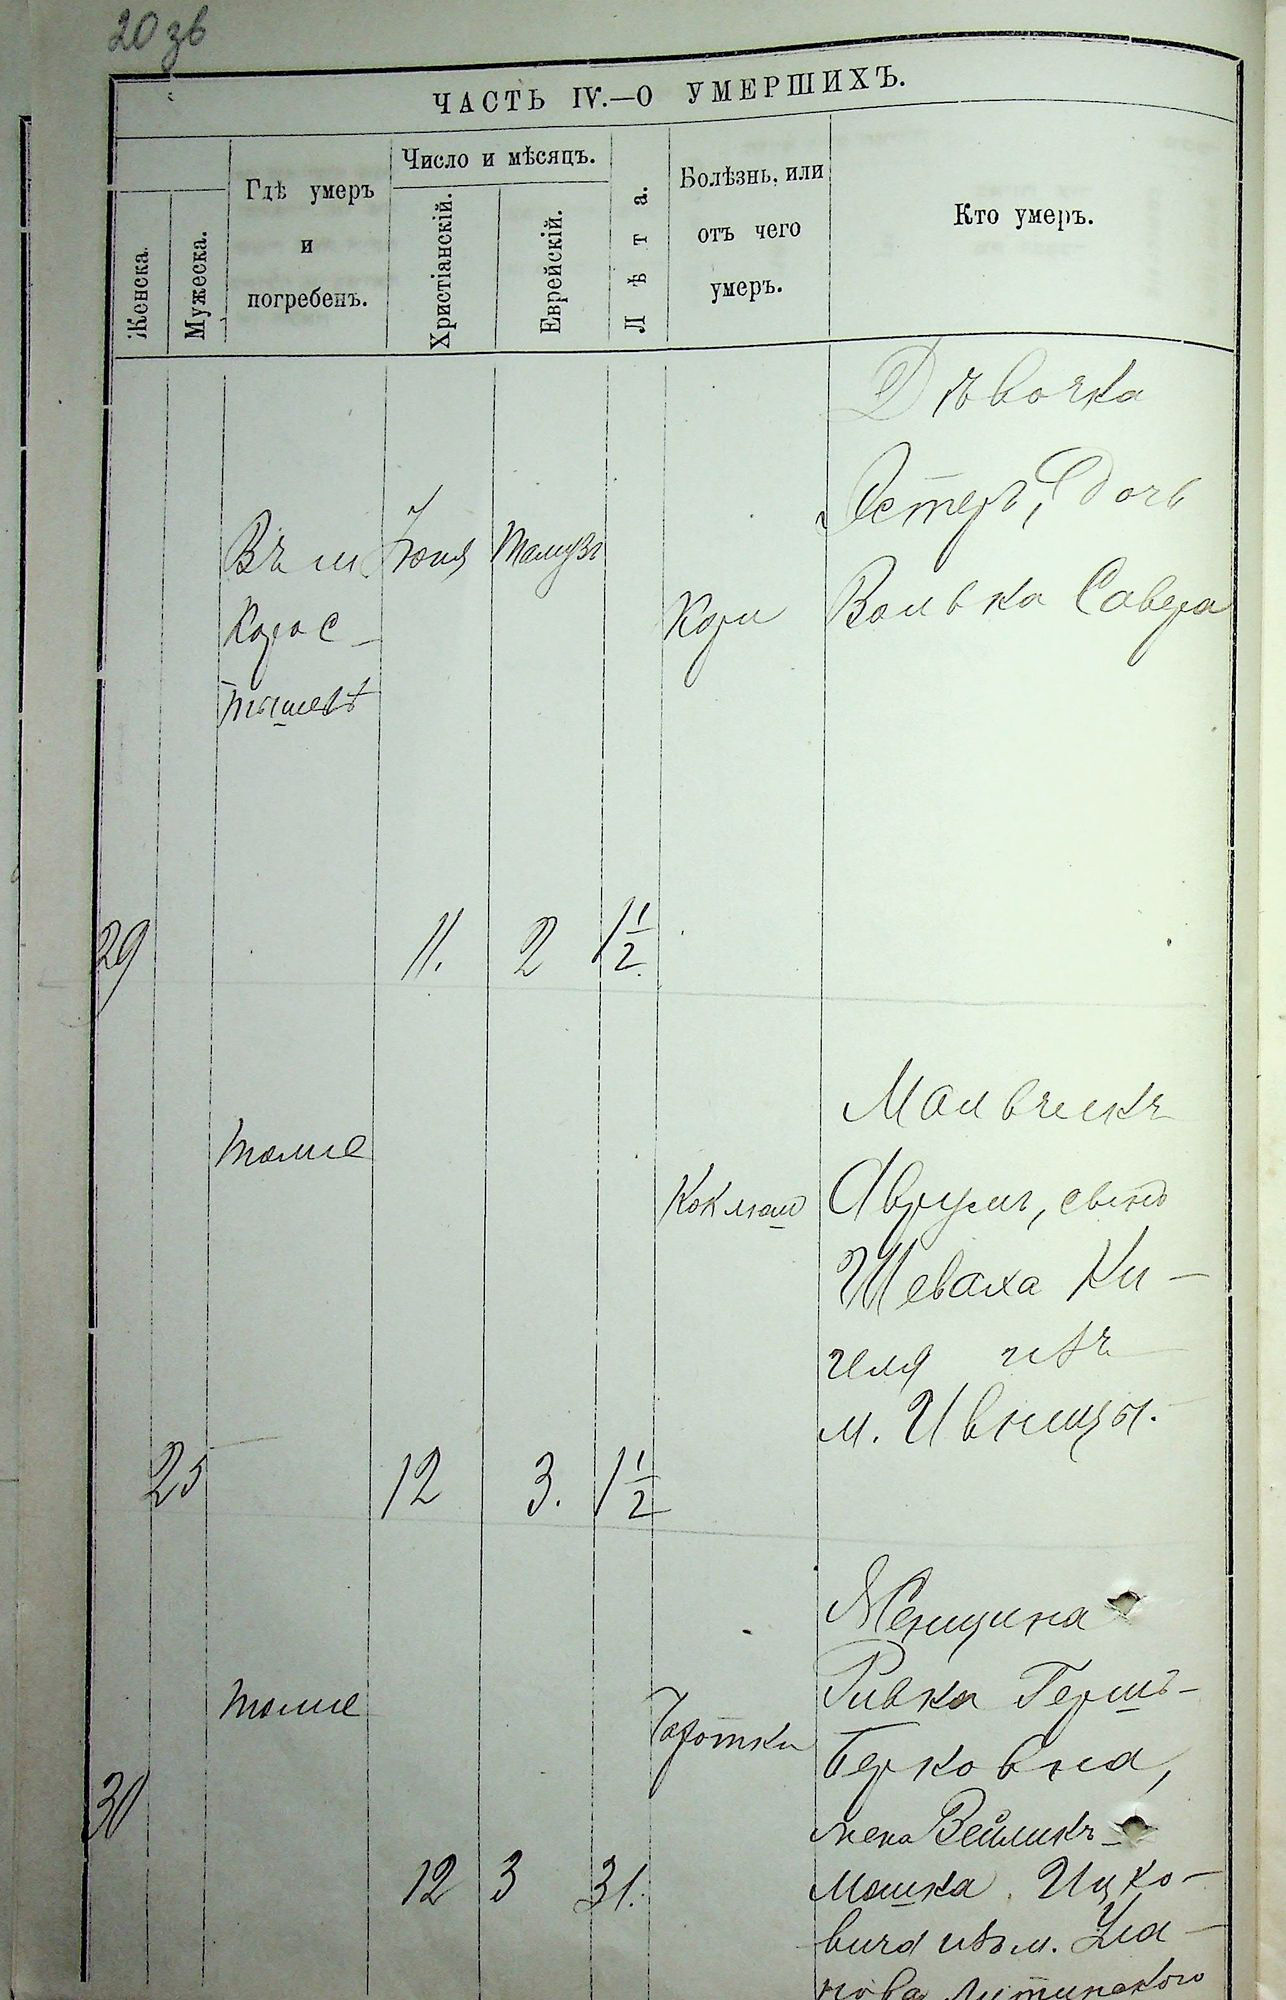 20 зв
ЧАСТЬ IV.—О УМЕРШИХЪ.
Женска.
Мужеска.
Гдѣ умеръ
и
погребенъ.
Число и мѣсяцъ.
Христіанскій.
Еврейскій.
Лѣта.
Болѣзнь, или
отъ чего
умеръ.
Кто умеръ.
Дѣвочка
Эстеръ, дочь
Въ м. Іюня Тамузъ
Корос-
Кори Волька Савера
тышевѣ
29 11. 2 1 1/2
Мальчикъ
тоже
Коклюш Аврумъ, сынъ
Шеваха Ки-
челя изъ
м. Ивницы.
25 12 3. 1 1/2
Женщина
Ривка Гершъ-
тоже
Чахотки Берковна,
30
жена Вейликъ-
12 3 31. Мошка Ицко-
вича изъ м. Ула-
нова Литинского